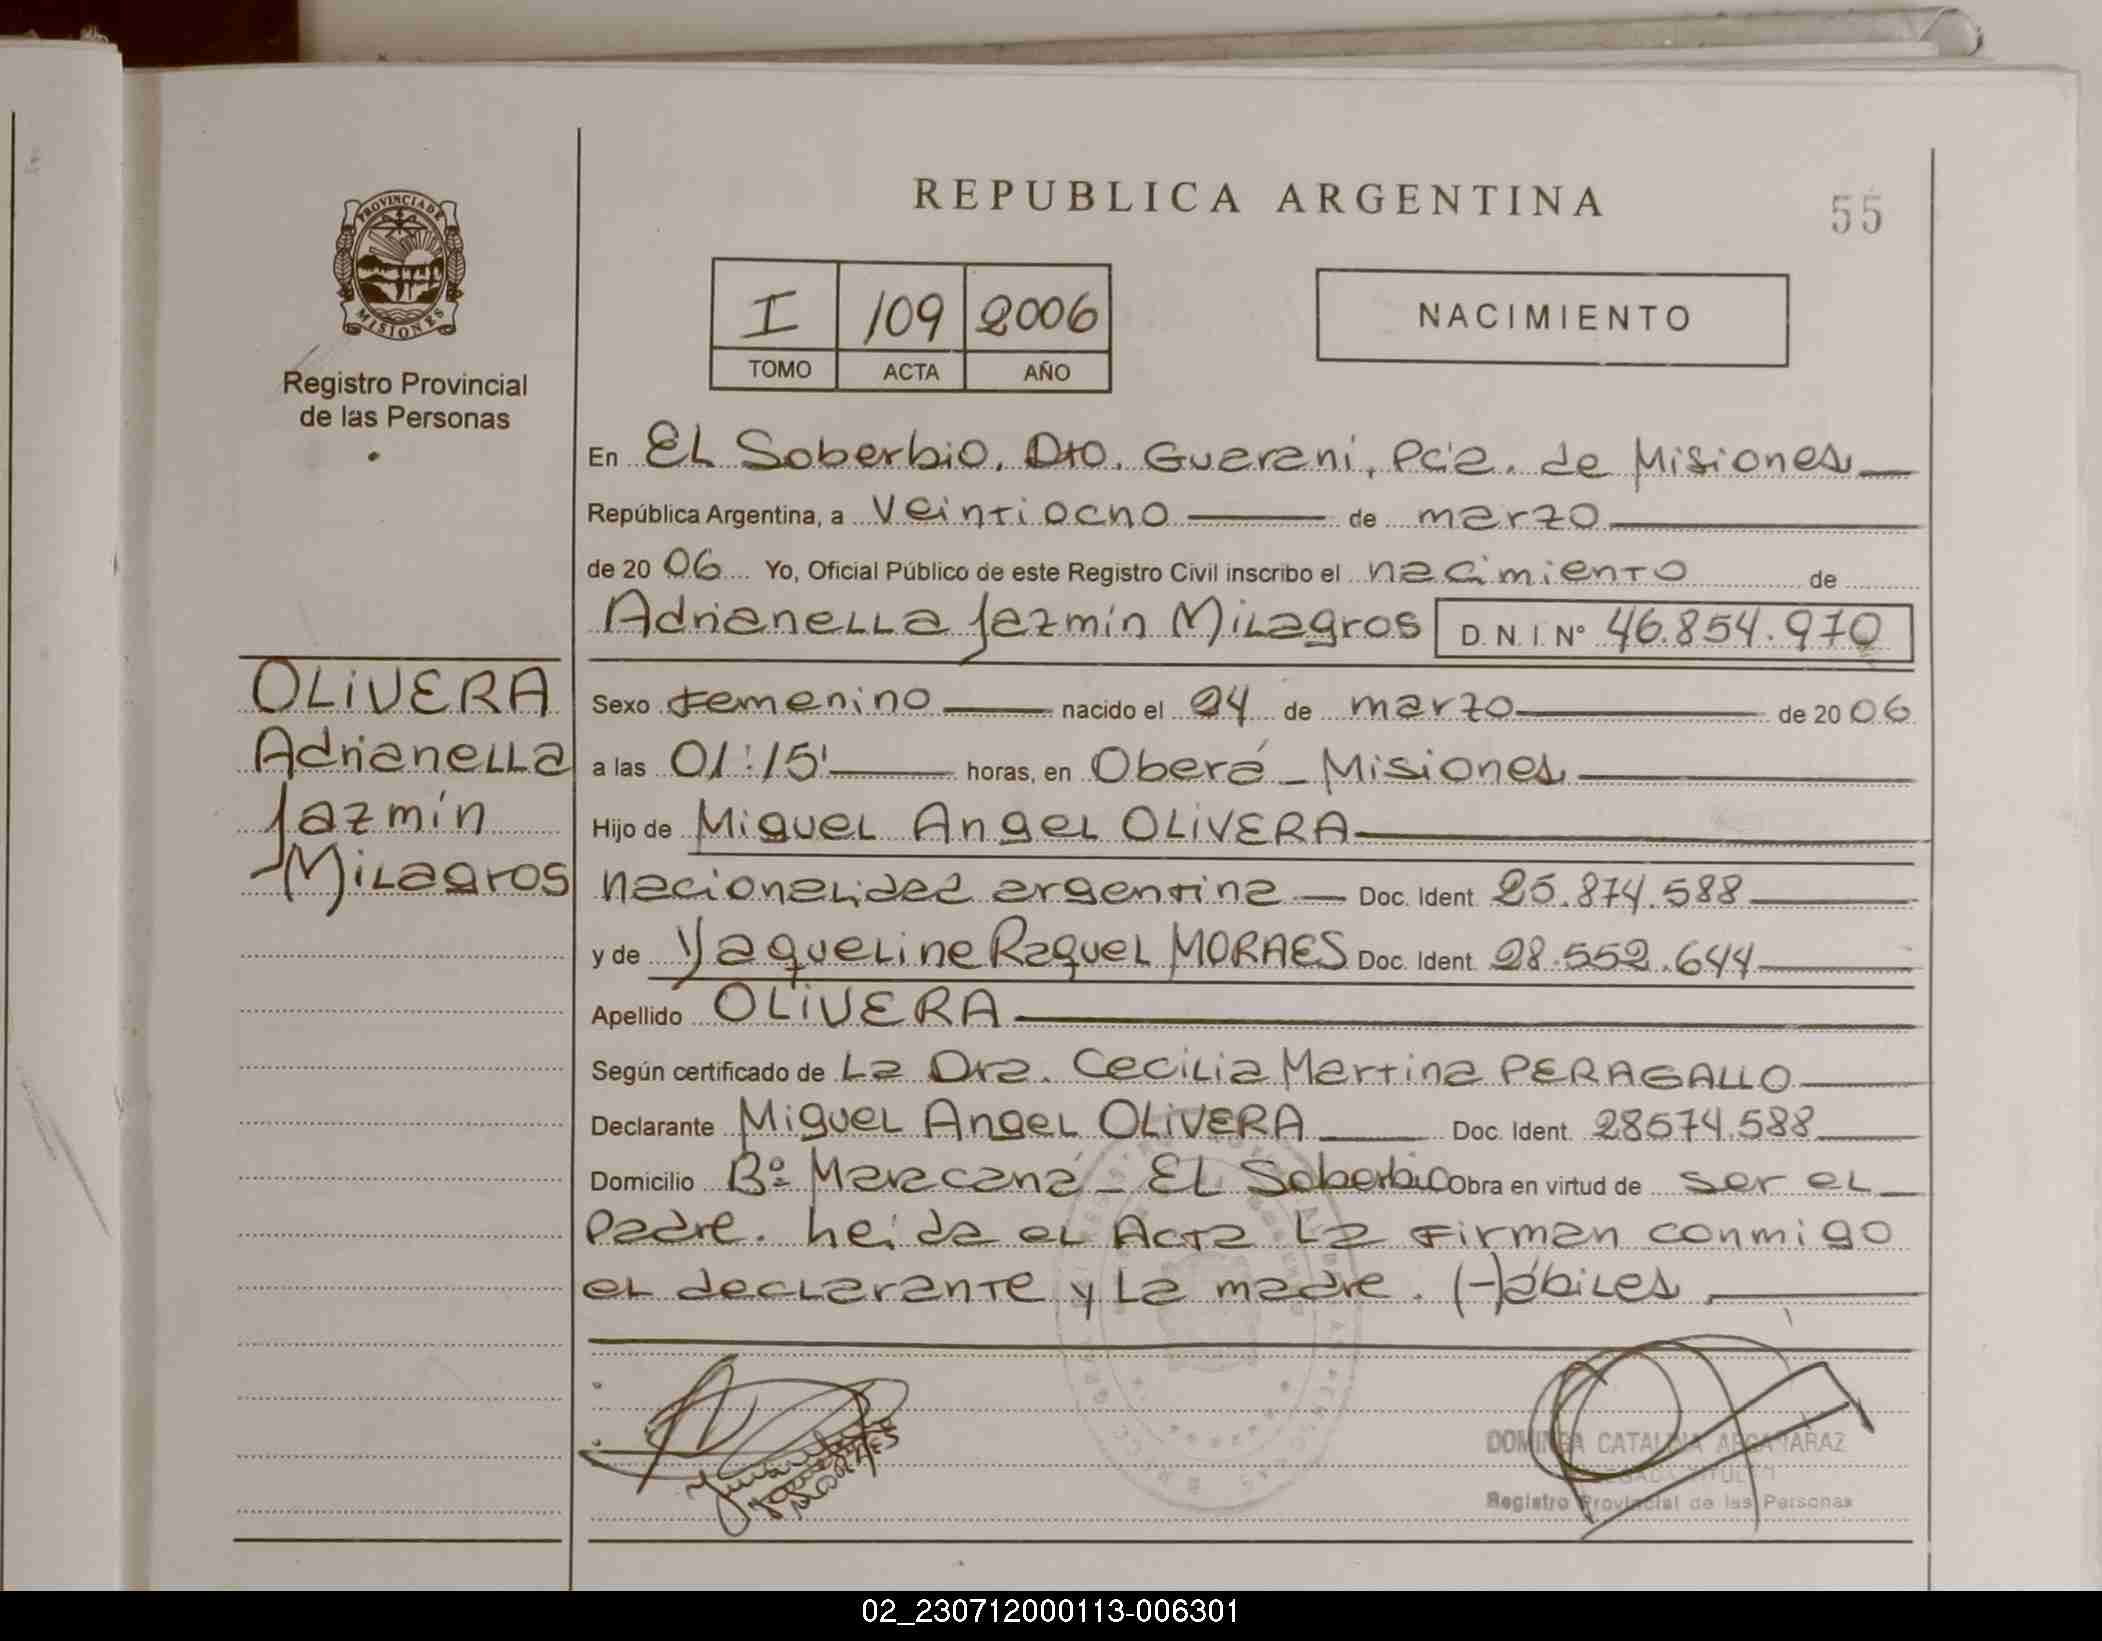 REPUBLICA ARGENTINA
55
PROVINCIA DE
MISIONES
Registro Provincial
de las Personas
I 109 2006
TOMO ACTA AÑO
NACIMIENTO
En EL Soberbio, Dto. Guarani, Pcia. de Misiones
República Argentina, a veintiocho de marzo
de 20 06 Yo, Oficial Público de este Registro Civil inscribo el nacimiento de
Adrianella Jazmín Milagros D. N. I. Nº 46.854.970
OLIVERA
Adrianella
Jazmín
Milagros
Sexo femenino nacido el 24 de marzo de 20 06
a las 01:15' horas, en Oberá - Misiones
Hijo de Miguel Angel OLIVERA
nacionalidad argentina Doc. Ident. 25.874.588
y de Yaqueline Raquel MORAES Doc. Ident. 28.552.644
Apellido OLIVERA
Según certificado de La Dra. Cecilia Martina PERAGALLO
Declarante Miguel Angel OLIVERA Doc. Ident. 28574.588
Domicilio Bº Maracaná - EL Soberbio Obra en virtud de ser el
Padre. Leida el Acta la firman conmigo
el declarante y la madre. Hábiles
MORAES
DOMINGA CATALINA
Registro Provincial de las Personas
02_230712000113-006301